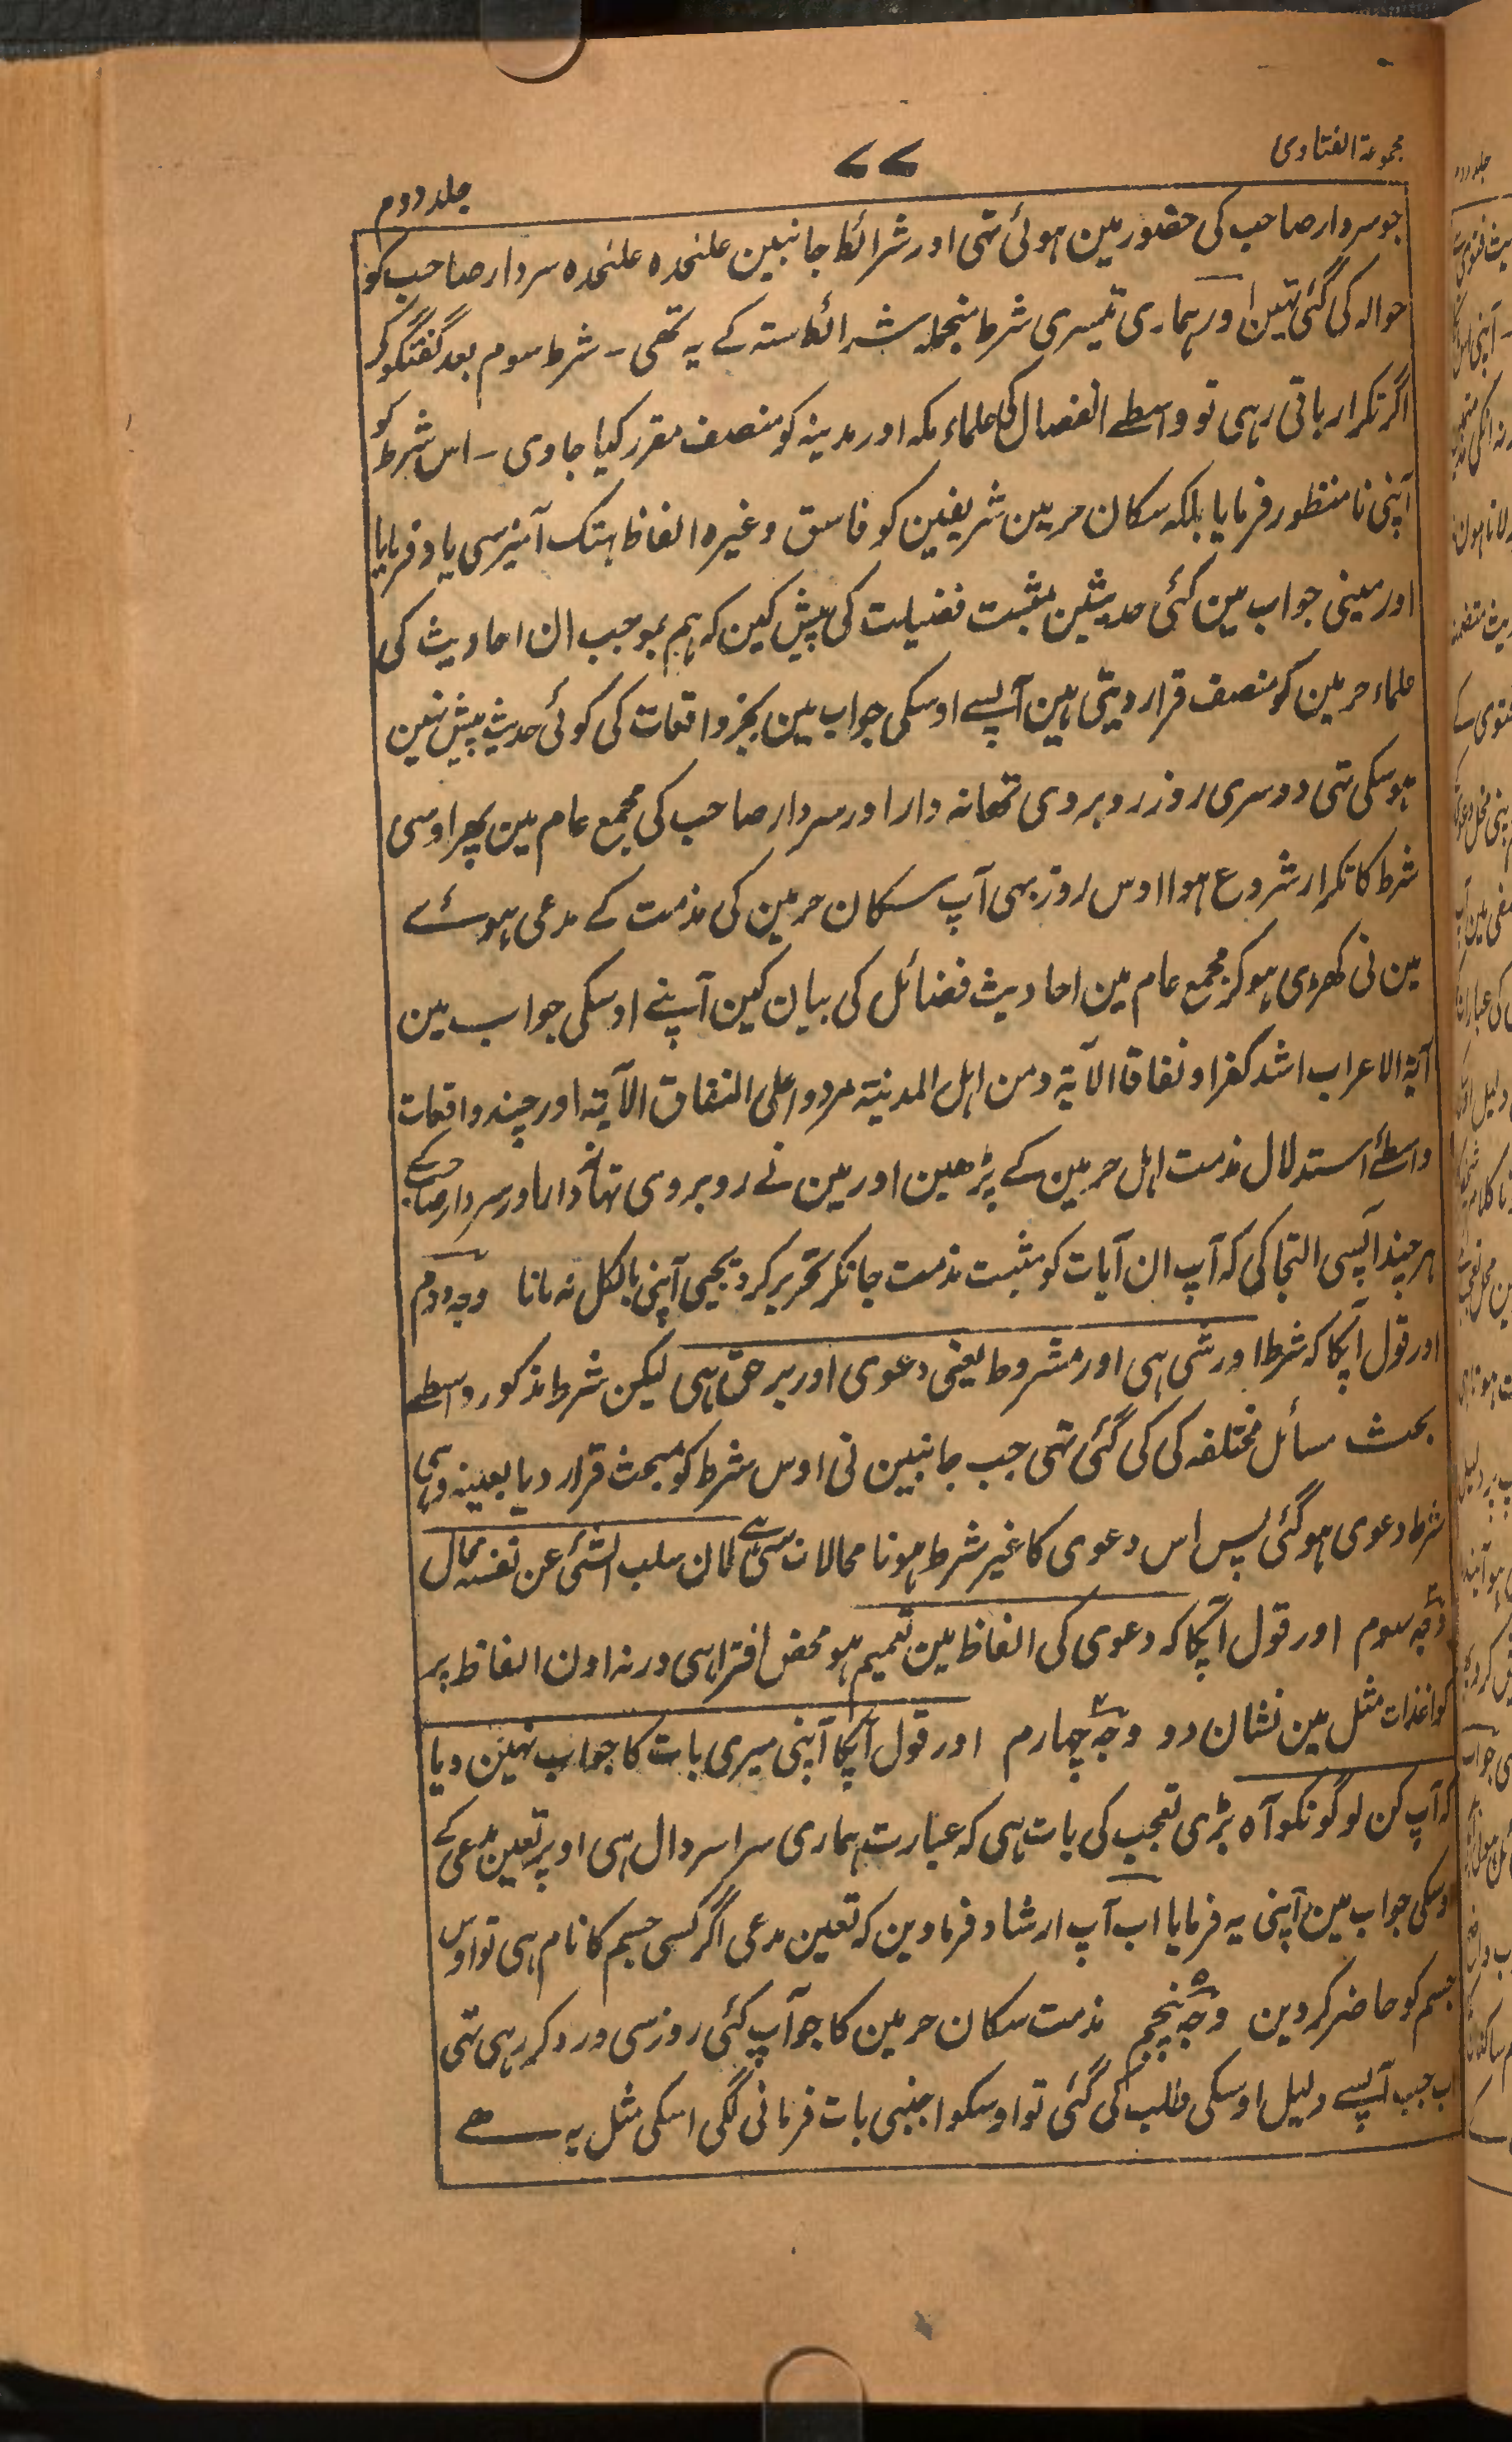 مجموعۃ الفتاوی
۷۷
جلد دوم
جو سردار صاحب کی حضور مین ہوئی تہی اور شرائط جانبین علٰحدہ علٰحدہ سردار صاحب کو
حوالہ کی گئی تہین اور ہماری تیسری شرط منجملہ شرائط ستہ کے یہ تھی ۔ شرط سوم بعد گفتگو کر
اگر تکرار باقی رہی تو واسطے انفصال کی علماء مکہ اور مدینہ کو منصف مقرر کیا جاوی ۔ اس شرط کو
آپنی نامنظور فرمایا بلکہ سکان حرمین شریفین کو فاسق وغیرہ الفاظ ہتک آمیز سی یاد فرمایا
اور مینی جواب مین کئی حدیثین مثبت فضیلت کی پیش کین کہ ہم بموجب ان احادیث کی
علماء حرمین کو منصف قرار دیتی ہین آپسے اوسکی جواب مین بجز واقعات کی کوئی حدیث پیش نہین
ہوسکی تہی دوسری روز روبروی تھانہ دار اور سردار صاحب کی مجمع عام مین پھر اوسی
شرط کا تکرار شروع ہوا اوس روز بہی آپ سکان حرمین کی مذمت کے مدعی ہوئے
مین نی کھڑی ہوکر مجمع عام مین احادیث فضائل کی بیان کین آپنے اوسکی جواب مین
آیۃ الاعراب اشد کفرا ونفاقا الآیۃ ومن اہل المدینۃ مردوا علی النفاق الآیۃ اور چند واقعات
واسطے استدلال مذمت اہل حرمین کے پڑھین اور مین نے روبروی تہانہ دار اور سردار صاحب کے
ہر چند آپسی التجا کی کہ آپ ان آیات کو مثبت مذمت جانکر تحریر کر دیجیی آپنی بالکل نہ مانا وجہ دوم
اور قول آپکا کہ شرط اور شی ہی اور مشروط یعنی دعوی اور برحق ہی لیکن شرط مذکور واسطے
بحث مسائل مختلفہ کی کی گئی تہی جب جانبین نی اوس شرط کو مبحث قرار دیا بعینہ وہی
شرط دعوی ہو گئی پس اس دعوی کا غیر شرط ہونا محالات سی ہے لان سلب الشئ عن نفسہ محال
وجہ سوم اور قول آپکا کہ دعوی کی الفاظ مین تعمیم ہو محض افترا ہی ورنہ اون الفاظ پر
کواغذات مثل مین نشان دو وجہ چہارم اور قول آپکا آپنی میری بات کا جواب نہین دیا
کہ آپ کن لوگونکو آہ بڑی تعجب کی بات ہی کہ عبارت ہماری سراسر دال ہی اوپر تعین مدعی کے
اوسکی جواب مین آپنی یہ فرمایا اب آپ ارشاد فرمادین کہ تعین مدعی اگر کسی جسم کا نام ہی تو اوس
جسم کو حاضر کردین وجہ پنجم مذمت سکان حرمین کا جو آپ کئی روز سی ورد کر رہی تہی
اب جب آپسے دلیل اوسکی طلب کی گئی تو اوسکو اجنبی بات فرمانی لگی اسکی مثل یہ ہے